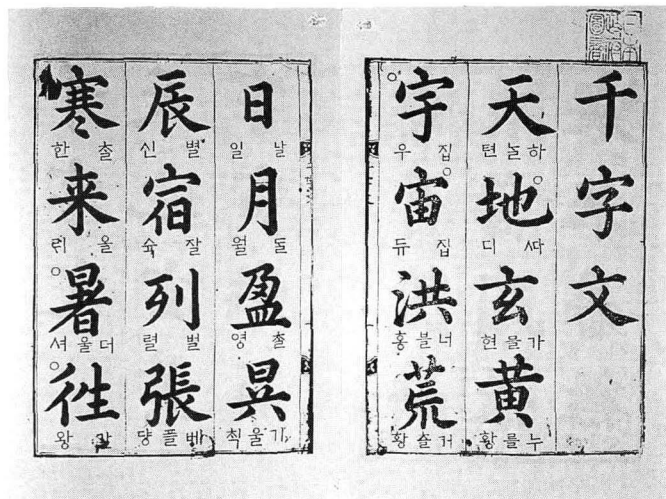 千字文
天 하ᄂᆞᆯ텬 地 ᄯᅡ디 玄 가믈현 黃 누를황
宇 집우 宙 집듀 洪 너블홍 荒 거츨황
日 날일 月 ᄃᆞᆯ월 盈 ᄎᆞᆯ영 昃 기울칙
辰 별신 宿 잘슉 列 벌렬 張 베플댱
寒 ᄎᆞᆯ한 来 올ᄅᆡ 暑 더울셔 徃 갈왕